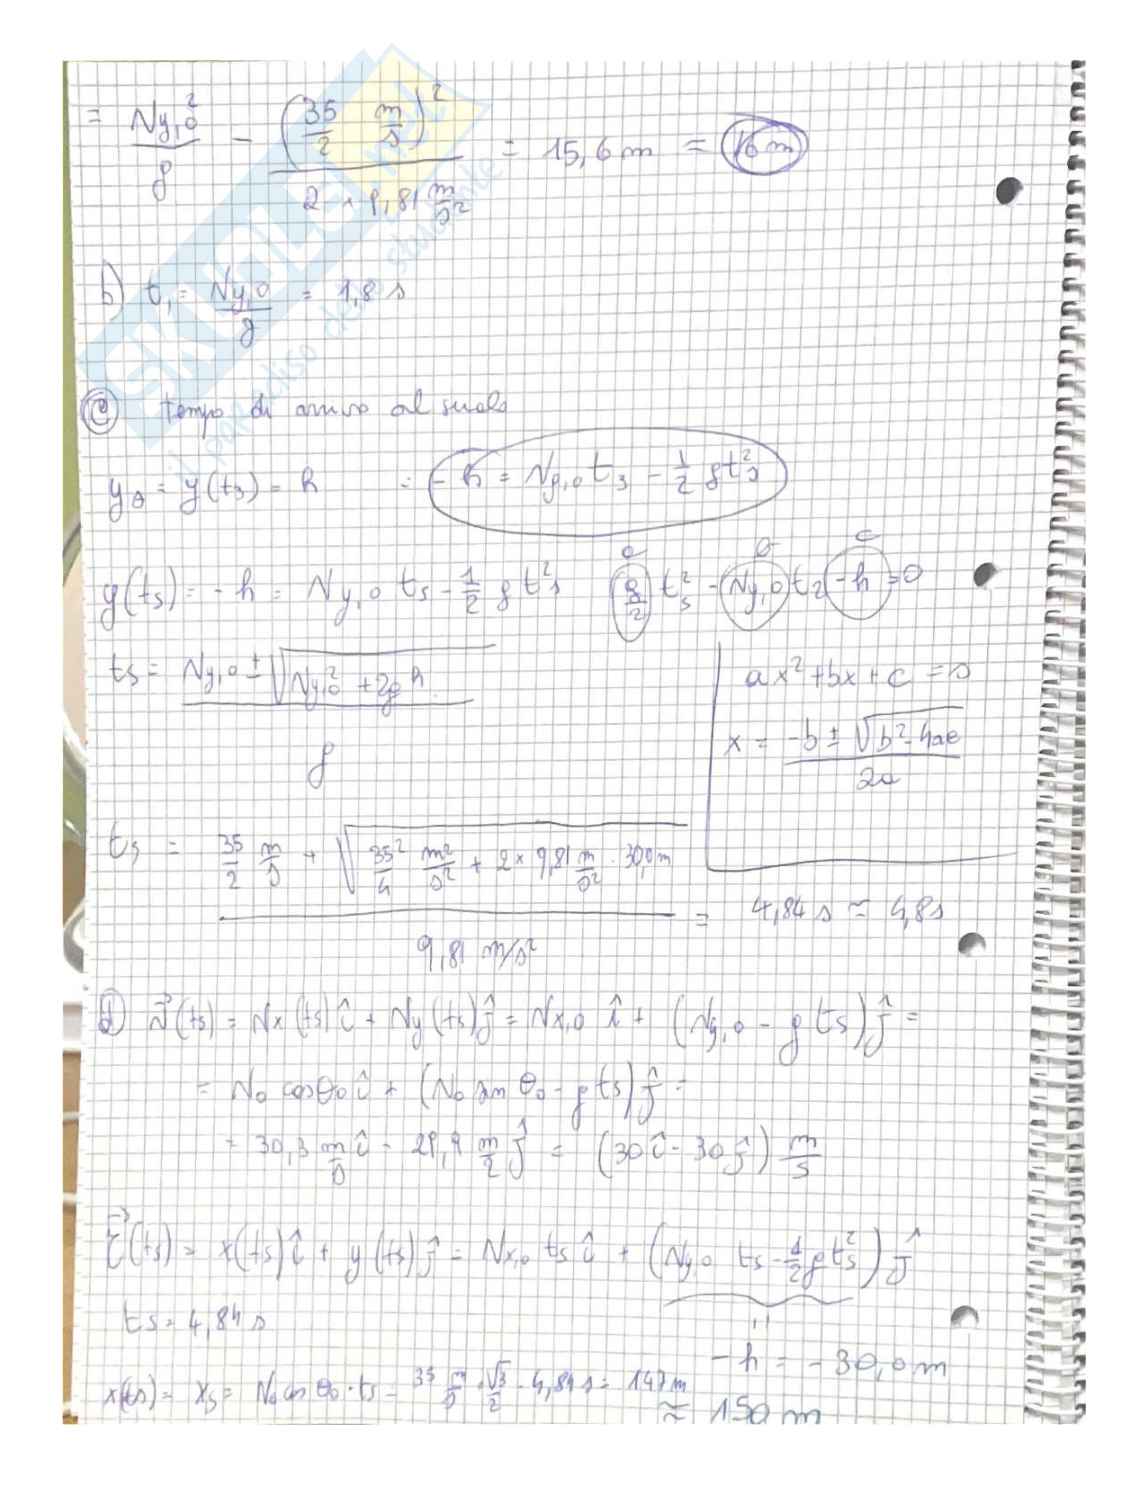 = Vy,0² / g - (35/2 m/s)² / 2 × 9,81 m/s² = 15,6 m = 16 m
b) t₁ = Vy,0 / g = 1,8 s
c) tempo di arrivo al suolo
ys = y(ts) = h = - h = Vy,0 ts - 1/2 g ts²
y(ts) = - h = Vy,0 ts - 1/2 g ts² g/2 ts² - Vy,0 t2 - h = 0
a b c
ts = Vy,0 ± √(Vy,0² + 2g h) / g
ax² + bx + c = 0
x = -b ± √(b² - 4ac) / 2a
ts = 35/2 m/s + √(35²/4 m²/s² + 2 × 9,81 m/s² · 30,0 m) / 9,81 m/s² = 4,84 s ≈ 4,8 s
d) v⃗(ts) = Vx(ts) î + Vy(ts) ĵ = Vx,0 î + (Vy,0 - g ts) ĵ =
= V₀ cosθ₀ î + (V₀ sin θ₀ - g ts) ĵ =
= 30,3 m/s î - 29,9 m/s ĵ = (30 î - 30 ĵ) m/s
r⃗(ts) = x(ts) î + y(ts) ĵ = Vx,0 ts î + (Vy,0 ts - 1/2 g ts²) ĵ
ts = 4,84 s
- h = - 30,0 m
x(ts) = xs = V₀ cos θ₀ · ts = 35 m/s · √3/2 · 4,84 s = 147 m
≈ 150 m
SKUOLA.net
il paradiso dello studente